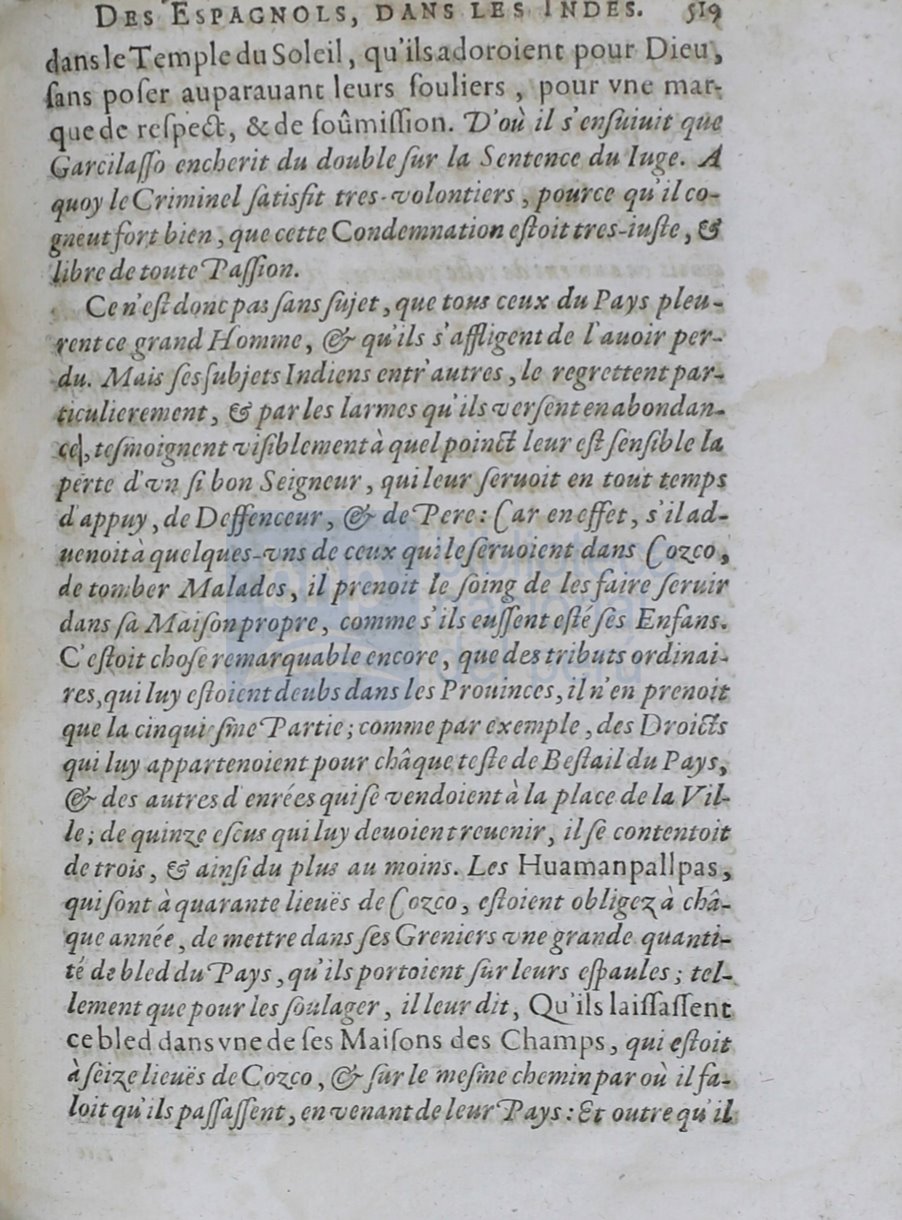 DES ESPAGNOLS, DANS LES INDES. 519
dans le Temple du Soleil, qu'ils adoroient pour Dieu,
ſans poſer auparauant leurs ſouliers, pour vne mar-
que de reſpect, & de ſoûmiſſion. D'où il s'enſuiuit que
Garcilaſſo encherit du double ſur la Sentence du Iuge. A
quoy le Criminel ſatisfit tres-volontiers, pource qu'il co-
gneut fort bien, que cette Condemnation eſtoit tres-iuſte, &
libre de toute Paſſion.
Ce n'eſt donc pas ſans ſujet, que tous ceux du Pays pleu-
rent ce grand Homme, & qu'ils s'affligent de l'auoir per-
du. Mais ſes ſubjets Indiens entr'autres, le regrettent par-
ticulierement, & par les larmes qu'ils verſent en abondan-
ce, teſmoignent viſiblement à quel poinct leur eſt ſenſible la
perte d'vn ſi bon Seigneur, qui leur ſeruoit en tout temps
d'appuy, de Deffenceur, & de Pere: Car en effet, s'il ad-
uenoit à quelques-vns de ceux qui le ſeruoient dans Cozco,
de tomber Malades, il prenoit le ſoing de les faire ſeruir
dans ſa Maiſon propre, comme s'ils euſſent eſté ſes Enfans.
C'eſtoit choſe remarquable encore, que des tributs ordinai-
res, qui luy eſtoient deubs dans les Prouinces, il n'en prenoit
que la cinquieſme Partie; comme par exemple, des Droicts
qui luy appartenoient pour châque teſte de Beſtail du Pays,
& des autres denrées qui ſe vendoient à la place de la Vil-
le; de quinze eſcus qui luy deuoient reuenir, il ſe contentoit
de trois, & ainſi du plus au moins. Les Huamanpallpas,
qui ſont à quarante lieuës de Cozco, eſtoient obligez à châ-
que année, de mettre dans ſes Greniers vne grande quanti-
té de bled du Pays, qu'ils portoient ſur leurs eſpaules; tel-
lement que pour les ſoulager, il leur dit, Qu'ils laiſſaſſent
ce bled dans vne de ſes Maiſons des Champs, qui eſtoit
à ſeize lieuës de Cozco, & ſur le meſme chemin par où il fa-
loit qu'ils paſſaſſent, en venant de leur Pays: Et outre qu'il